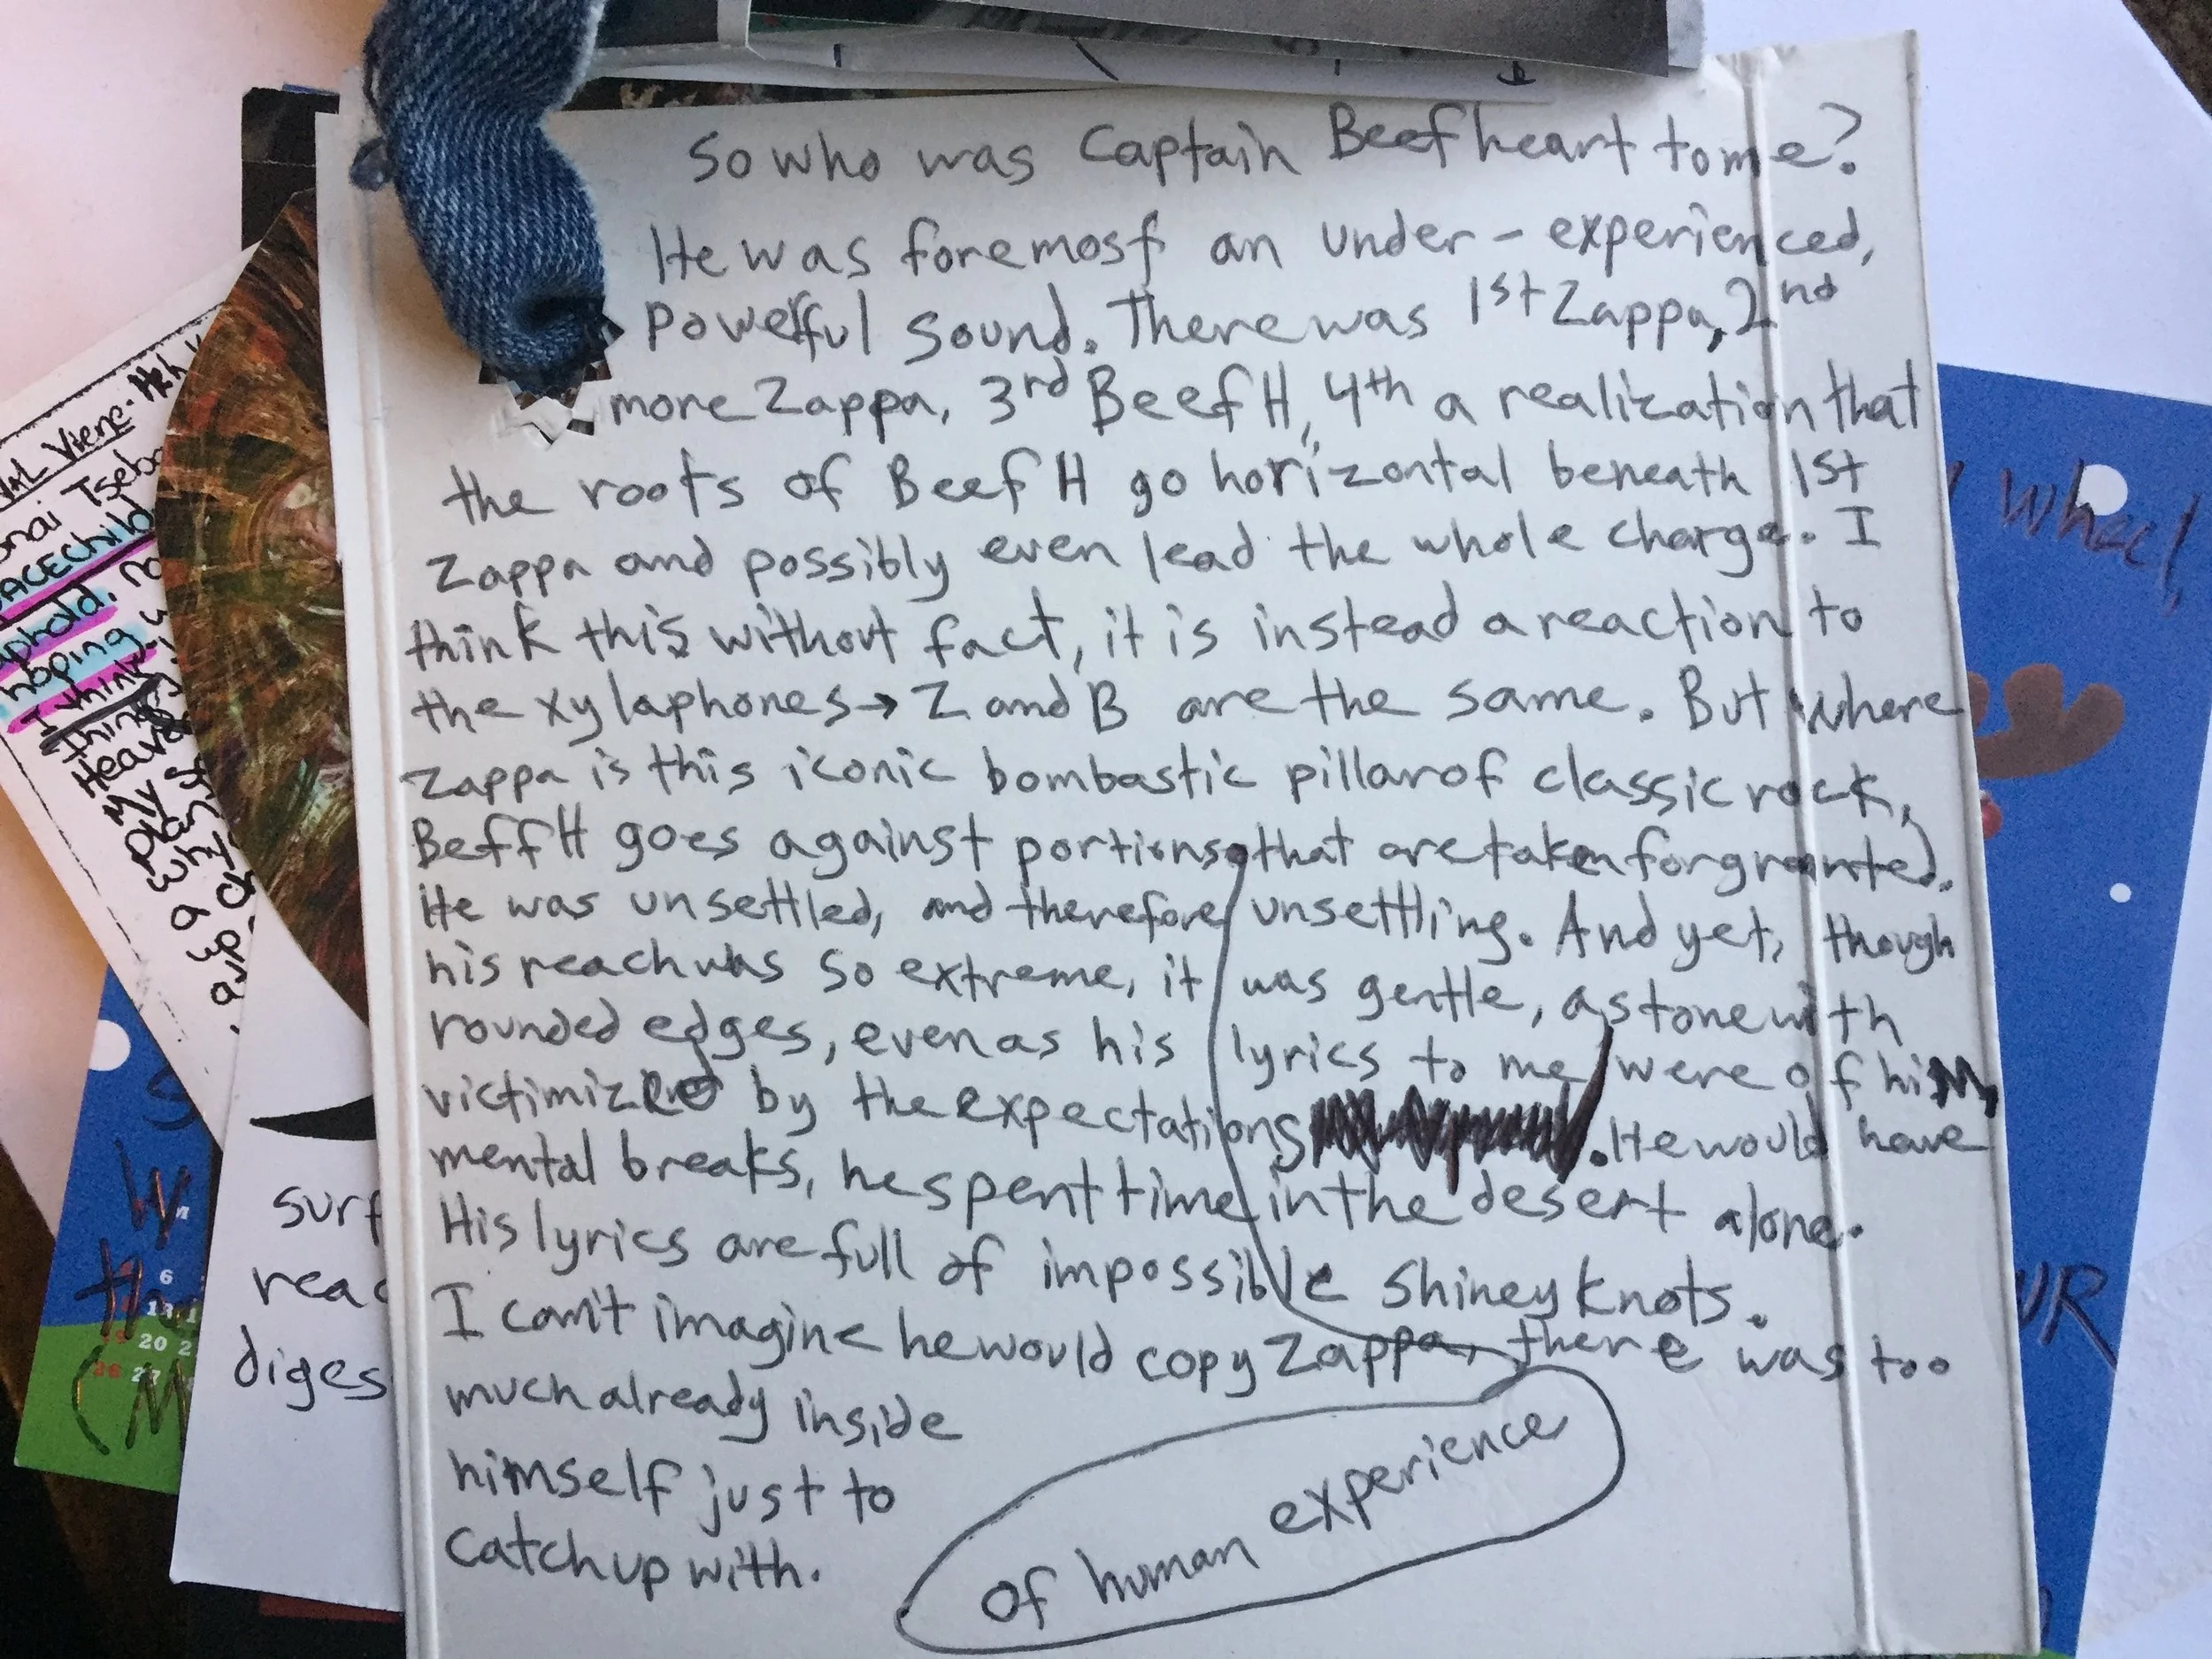 So who was Captain Beefheart to me?
He was foremost an under-experienced,
powerful sound. There was 1st Zappa, 2nd
more Zappa, 3rd Beef H, 4th a realization that
the roots of Beef H go horizontal beneath 1st
Zappa and possibly even lead the whole charge. I
think this without fact, it is instead a reaction to
the xylaphones → Z and B are the same. But where
Zappa is this iconic bombastic pillar of classic rock,
Beff H goes against portions that are taken for granted.
He was unsettled, and therefore unsettling. And yet, though
his reach was so extreme, it was gentle, a stone with
rounded edges, even as his lyrics to me were of him,
victimized by the expectations . He would have
mental breaks, he spent time in the desert alone.
His lyrics are full of impossible shiney knots.
I can't imagine he would copy Zappa, there was too
much already inside
himself just to
catch up with.
of human experience
onai
hoping
I think
things
My
a
surf
reac
diges
6
13
20 2
26 27
(M
wheel,
UR